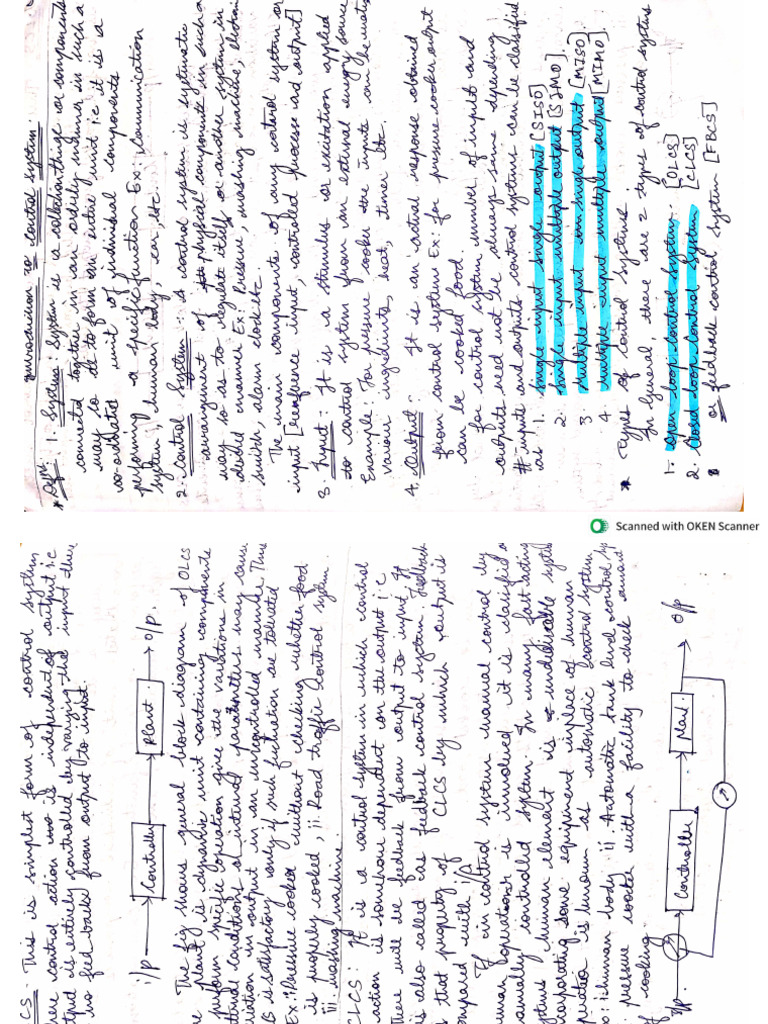 Introduction to control system
* Dfn: 1. System: System is a collection
connected together in an orderly manner in such a
way so as to form an entire unit i.e it is a
co-ordinated unit of individual components
performing a specific function Ex: Communication
system, human body, car, etc.
2. Control System - a control system is systematic
arrangement of physical components in such a
way so as to regulate itself or another system in
desired manner Ex: Pressure, washing machine, electric
switch, alarm clock etc.
The main components of any control system are
input [reference input, controlled process and output]
3. Input :- It is a stimulus or excitation applied
to control system from an external energy source
Example: For pressure cooker the inputs can be water
various ingredients, heat, timer etc.
4. Output: It is an actual response obtained
from control system Ex: for pressure cooker output
can be cooked food.
for control system number of inputs and
outputs need not be always same depending
# inputs and outputs control systems can be classified
as 1. single input single output [SISO]
2. single input multiple output [SIMO]
3 multiple input single output [MISO]
4. multiple input multiple output [MIMO]
* Types of control systems :
In general, there are 2 types of control systems
1. open loop control system. [OLCS]
2. Closed loop control System [CLCS]
or feedback control system [FBCS]
Scanned with OKEN Scanner
CS - This is simplest form of control system
here control action is independent of output i.e
output is entirely controlled by varying the input
no feed back from output to input.
i/p → Controller → Plant → o/p.
The fig shows general block diagram of OLCS
Plant is dynamic unit containing components
perform specific operation give the variations in
conditions or internal parameters may cause
variation in output in an uncontrolled manner. Thus
is satisfactory only if such fluctuation are tolerated
Ex: i. Pressure cooker without checking whether food
is properly cooked, ii. Road traffic Control system.
iii. washing machine.
CLCS: It is a control system in which control
action is somehow dependent on the output i.e
there will be feedback from output to input. It
is also called as feedback control system. Feedback
is that property of CLCS by which output is
compared with i/p
If in control system manual control by
human is involved it is classified as
manually controlled system. In many fast acting
systems human element is undesirable system
incorporating some equipment inplace of human
is known as automatic control system
i: human body ii. Automatic tank level control sys
pressure cooker with a facility to check amount
of cooking
i/p Controller Man o/p